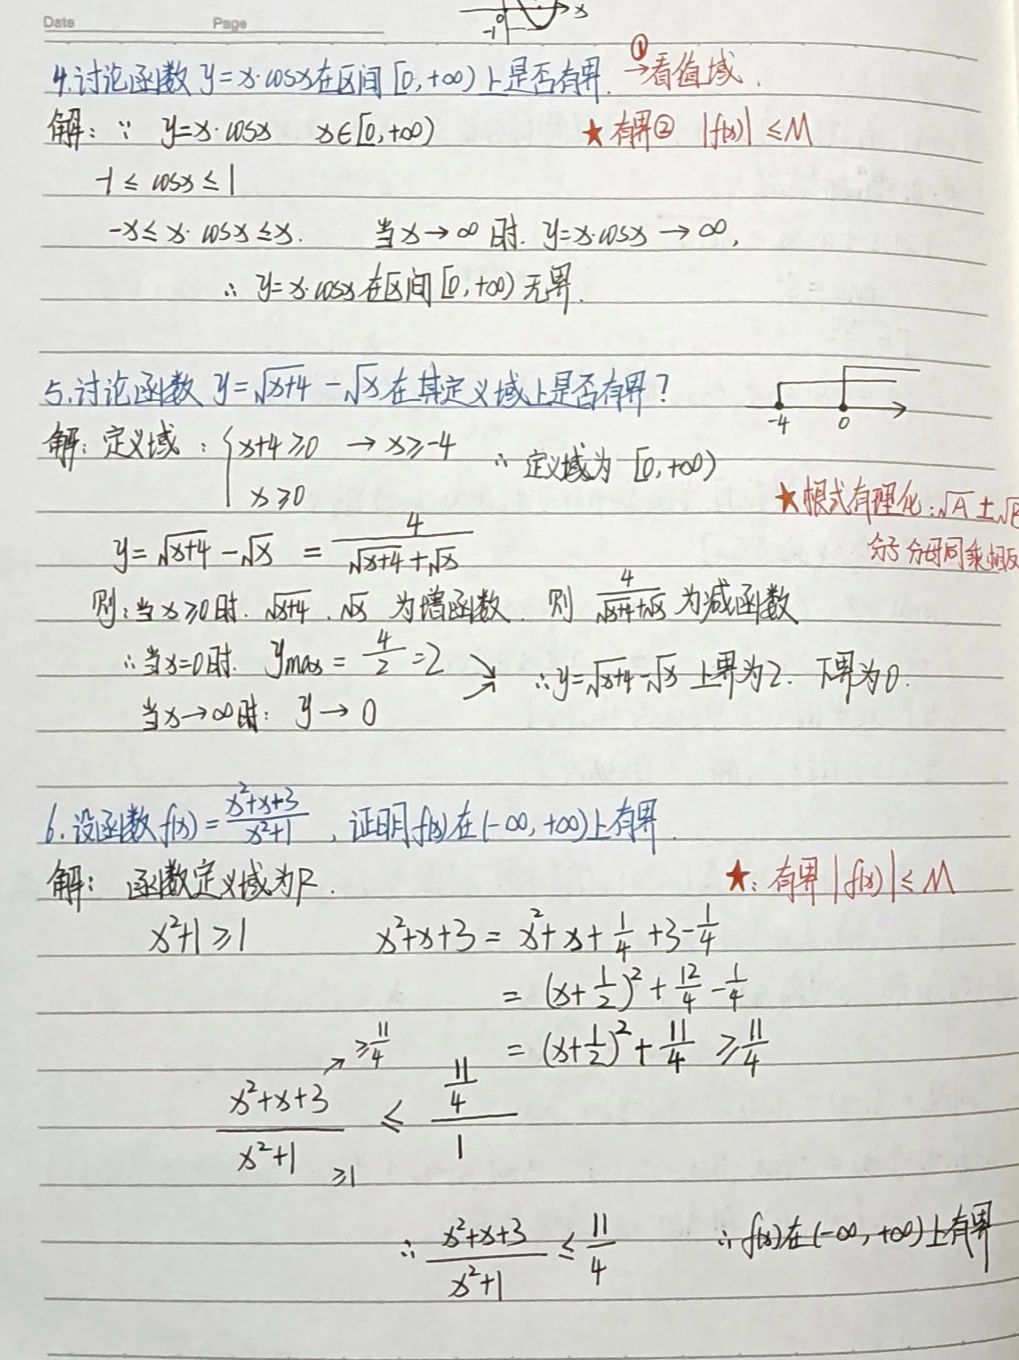 Date Page
0 x
-1
4.讨论函数 y=x·cosx在区间[0,+∞)上是否有界. ①→看值域.
解: ∵ y=x·cosx x∈[0,+∞) ★有界② |f(x)|≤M
-1≤cosx≤1
-x≤x·cosx≤x. 当x→∞时. y=x·cosx→∞,
∴ y=x·cosx在区间[0,+∞)无界.
5.讨论函数 y=√(x+4) - √x 在其定义域上是否有界?
-4 0
解: 定义域: { x+4≥0 → x≥-4 ∴ 定义域为 [0,+∞)
x≥0
★根式有理化:√A±√B
y=√(x+4)-√x = 4/(√(x+4)+√x)
分子分母同乘相反
则:当x≥0时. √(x+4). √x 为增函数. 则 4/(√(x+4)+√x) 为减函数
∴当x=0时. ymax=4/2=2 ∴y=√(x+4)-√x 上界为2. 下界为0.
当x→∞时: y→0
6.设函数f(x)=(x²+x+3)/(x²+1), 证明f(x)在(-∞,+∞)上有界.
解: 函数定义域为R. ★:有界|f(x)|≤M
x²+1≥1 x²+x+3=x²+x+1/4+3-1/4
=(x+1/2)²+12/4-1/4
=(x+1/2)²+11/4 ≥11/4
≥11/4
(x²+x+3)/(x²+1) ≤ (11/4)/1
≥1
∴ (x²+x+3)/(x²+1) ≤ 11/4 ∴ f(x)在(-∞,+∞)上有界